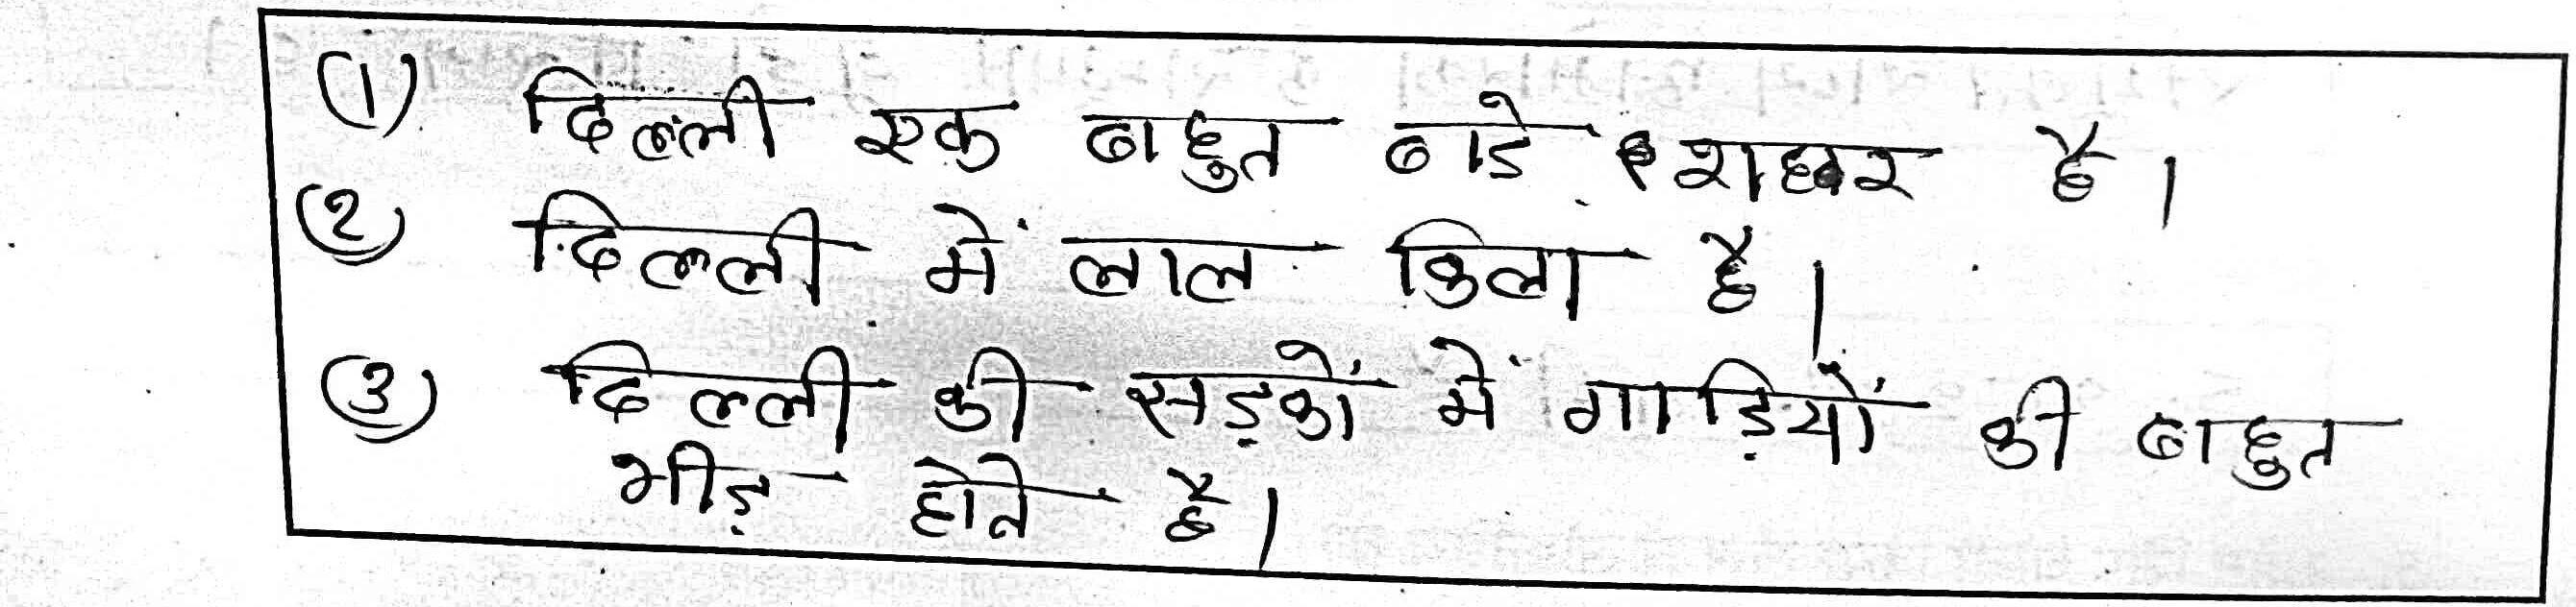 (1) दिल्ली एक बाहुत बाडे शहर है।
(२) दिल्ली में लाल किला है।
(3) दिल्ली की सड़कों में गाड़ियों की बाहुत
भीड़ होते है।